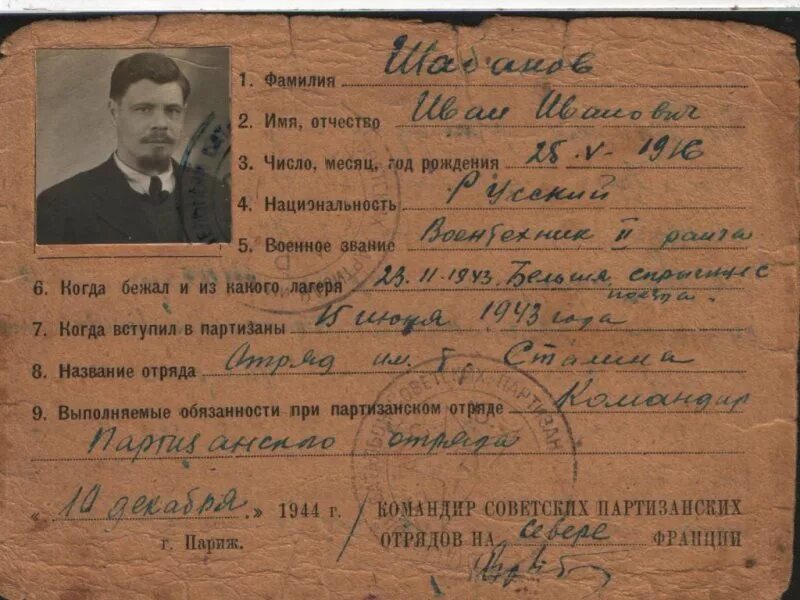 1. Фамилия Шабанов
2. Имя, отчество Иван Иванович
3. Число, месяц, год рождения 28.V-1916
4. Национальность Русский
5. Военное звание Воентехник II ранга
6. Когда бежал и из какого лагеря 23.11.1943. Бельгия, спрыгнув с
поезда.
7. Когда вступил в партизаны 15 июня 1943 года
8. Название отряда Отряд им. т. Сталина
9. Выполняемые обязанности при партизанском отряде Командир
Партизанского отряда
„ 10 декабря.“ 1944 г.
КОМАНДИР СОВЕТСКИХ ПАРТИЗАНСКИХ
г. Париж.
ОТРЯДОВ НА севере ФРАНЦИИ
СОВЕТСКИХ ПАРТИЗАН